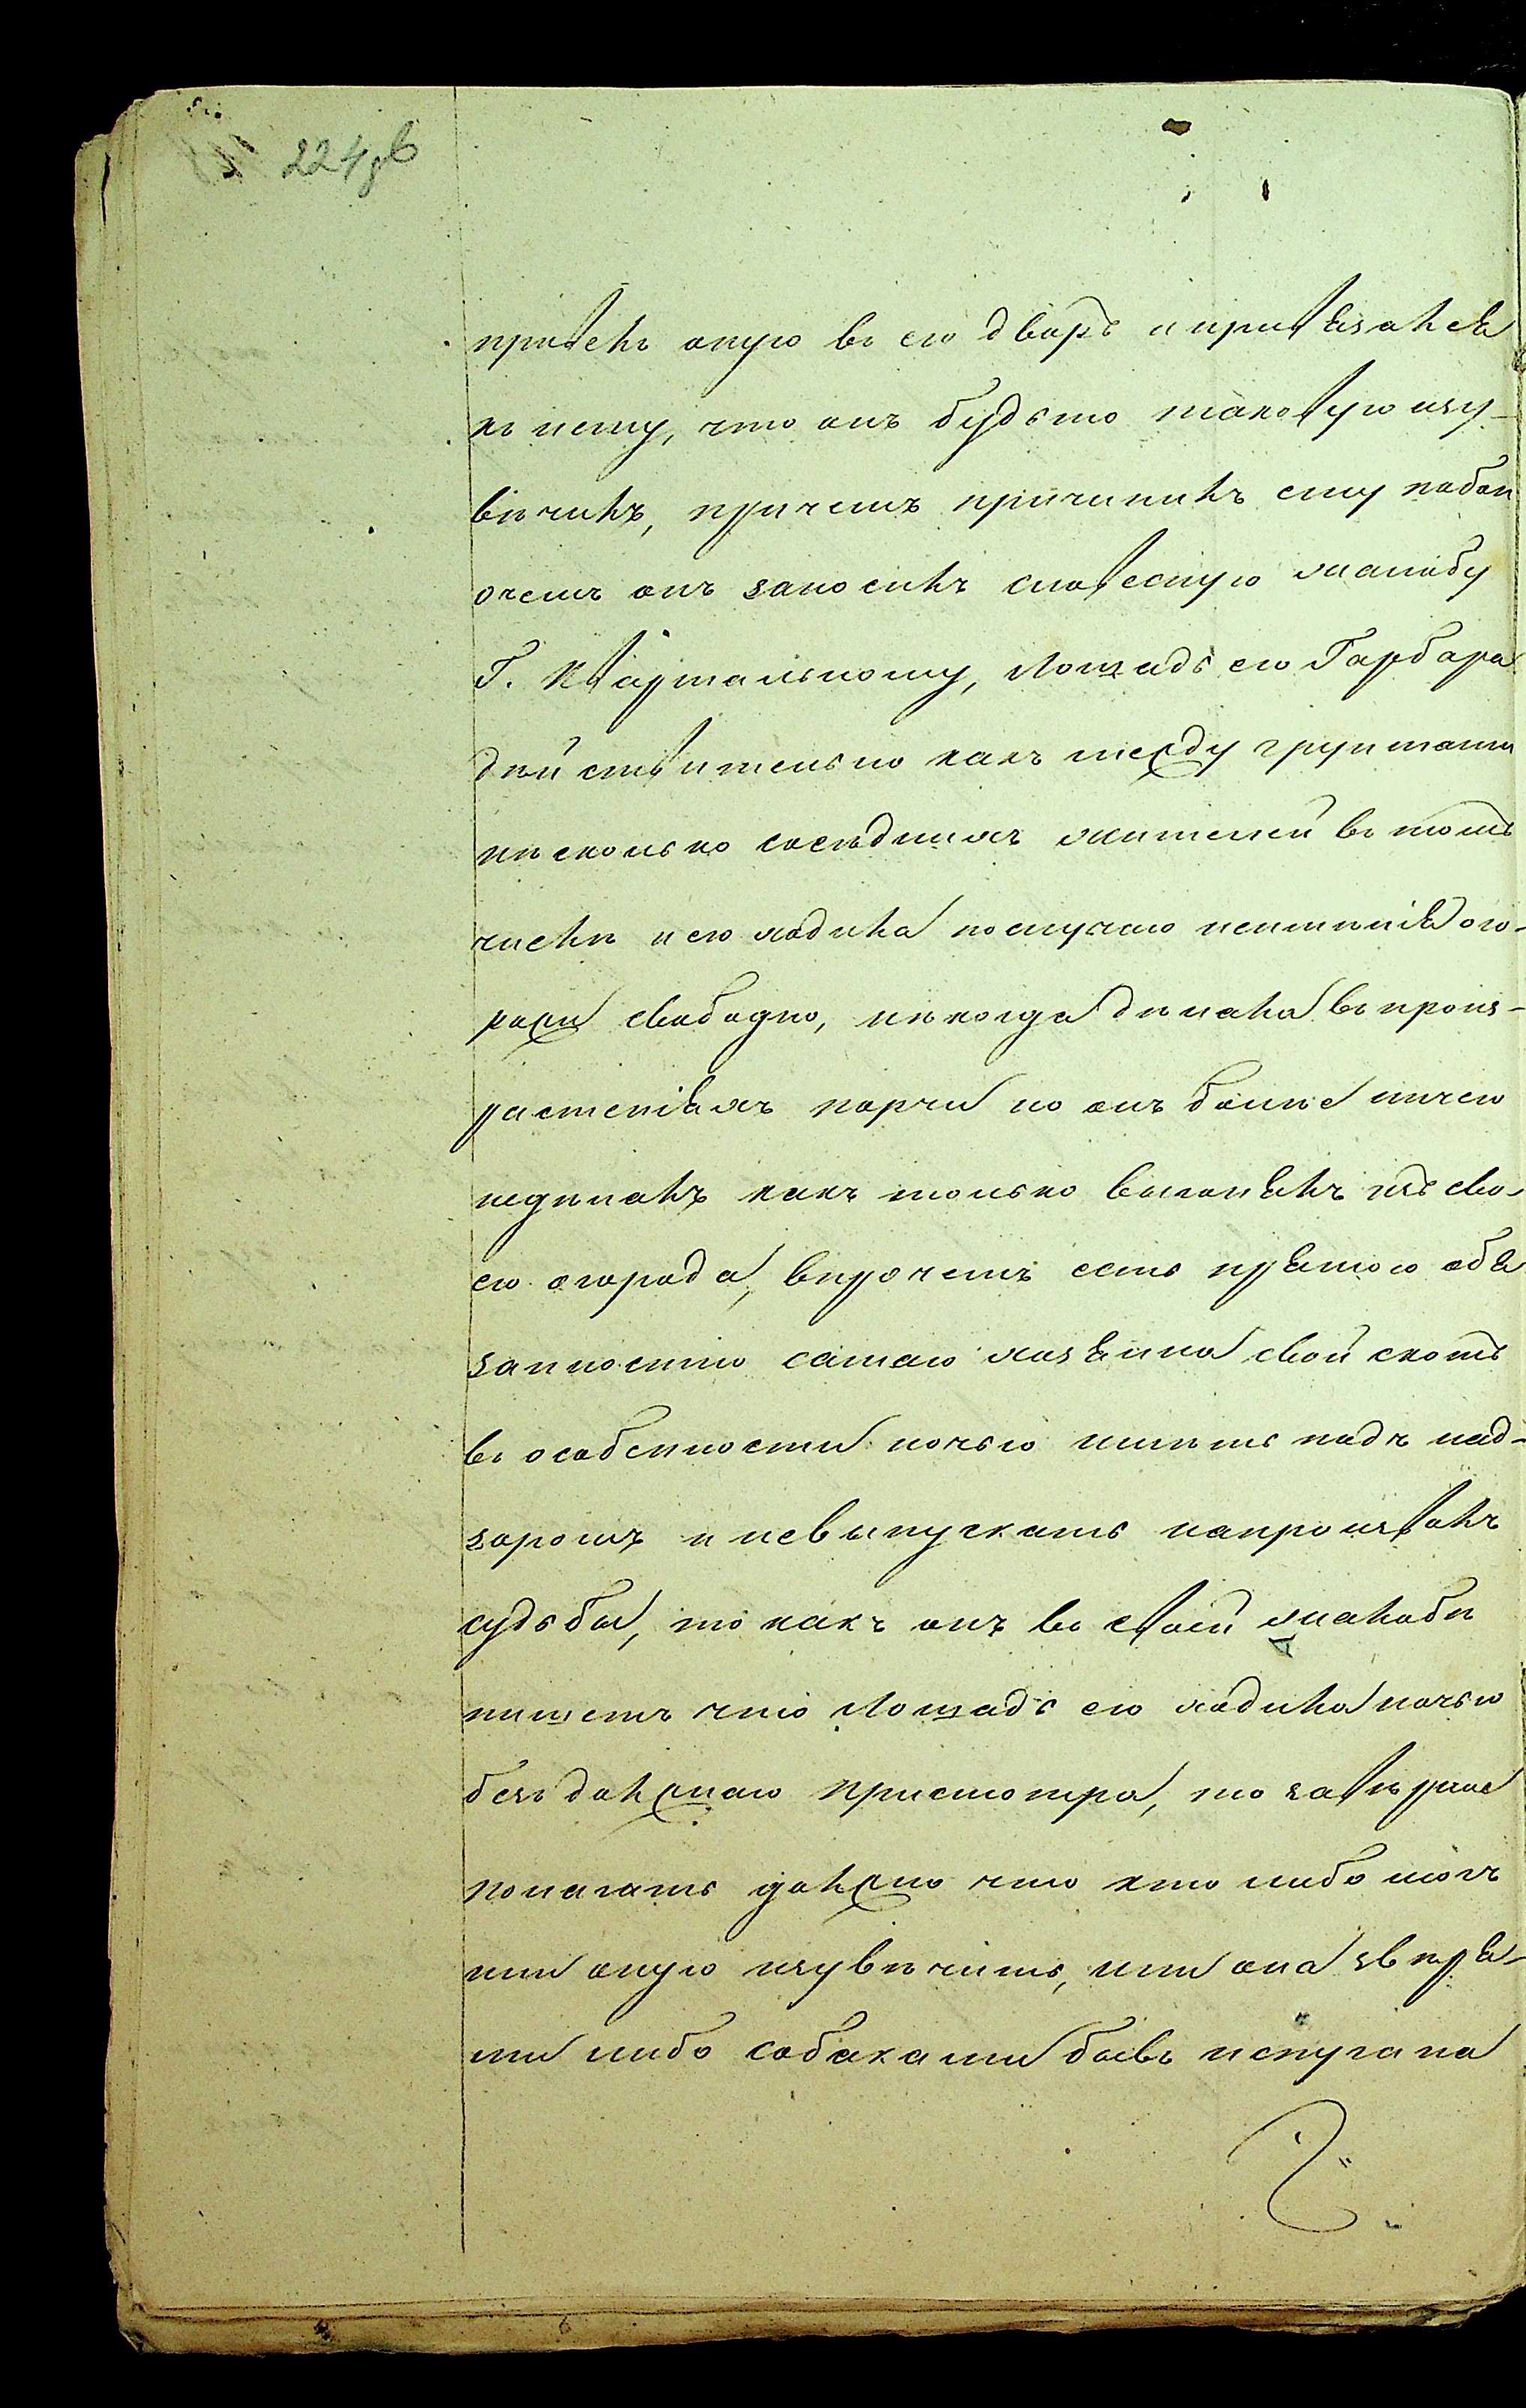 224 зв
привелъ оную въ его дворъ и привязался
къ нему, что онъ будьто таковую изу-
вѣчилъ, причемъ причинилъ ему побои
очемъ онъ заносилъ словесную жалобу
Г. Квартальному, Лошадь его Гарбара
дѣйствительно какъ между грунтами
нѣсколько сосѣднихъ жителей въ томъ
числѣ и его ходила послучаю неимѣнія ого-
рожи свободно, инкогда дѣлала въ произ-
растеніяхъ порчи но онъ болѣе ничего
недѣлалъ какъ только выгонялъ изъ сво-
его огорода, впрочемъ есть прямою обя
занностію самаго хозяина свой скотъ
въ особенности ночью имѣть подъ над-
зоромъ и невыпускать напроизволъ
судьбы, то какъ онъ въ своей жалобѣ
пишетъ что Лошадь его ходила ночью
безъ должнаго присмотра, то заверное
полагать должно что кто либо могъ
или оную изувѣчить, или она звѣря-
ми либо собаками бывъ испугана